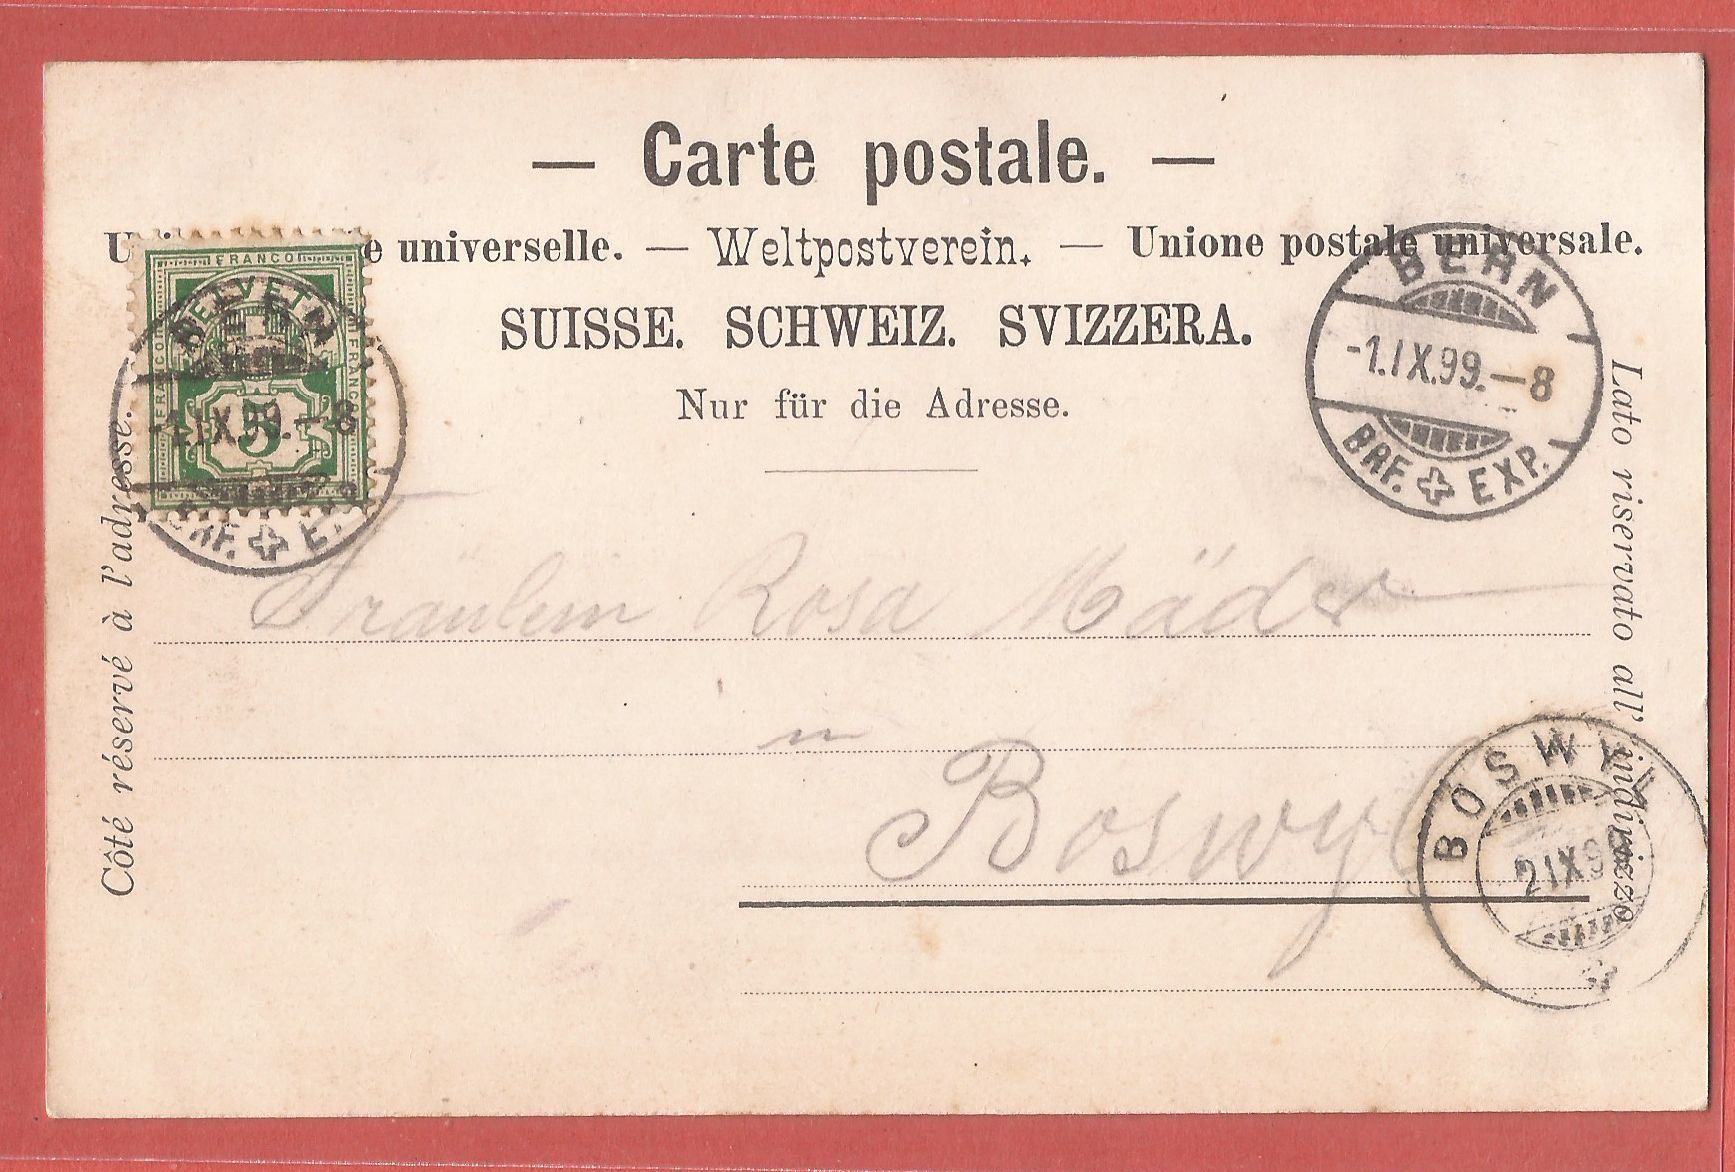 — Carte postale. —
e universelle. — Weltpostverein. — Unione postale universale.
SUISSE. SCHWEIZ. SVIZZERA.
Nur für die Adresse.
Côté réservé à l'adresse.
Lato riservato all' indirizzo
FRANCO
FRANCO
FRANCO
HELVETIA
5
BERN
-1.IX.99.—8
BRF. EXP.
BERN
-1.IX.99.—8
BRF. EXP.
Fräulein Rosa Mäder
in
Boswyl
BOSWYL
2 IX 99